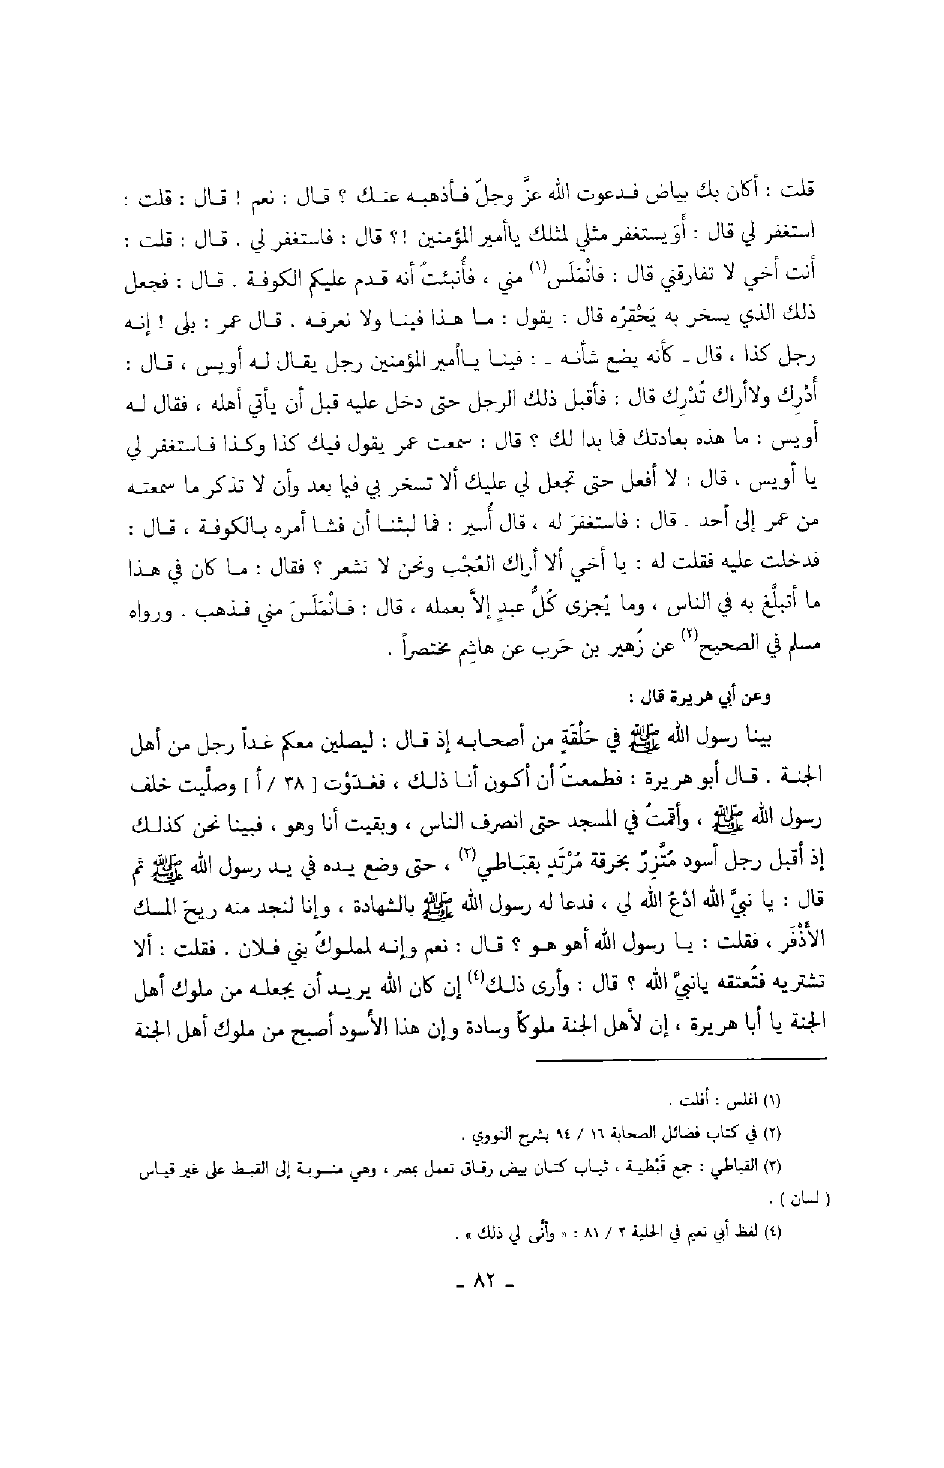 قلت : أكان بك بياض فدعوت الله عزَّ وجلّ فأذهبه عنك ؟ قال : نعم ! قال : قلت :
استغفر لي قال : أَوَيستغفر مثلي لمثلك ياأمير المؤمنين !؟ قال : فاستغفر لي . قال : قلت :
أنت أخي لا تفارقني قال : فانْمَلَس(١) مني ، فأُنبئتُ أنه قدم عليكم الكوفة . قال : فجعل
ذلك الذي يسخر به يَحْقرُه قال : يقول : ما هذا فينا ولا نعرفه . قال عمر : بلى ! إنه
رجل كذا ، قال ـ كأنه يضع شأنه ـ : فينا ياأمير المؤمنين رجل يقال له أويس ، قال :
أَدْرِك ولاأراك تُدْرِك قال : فأقبل ذلك الرجل حتى دخل عليه قبل أن يأتي أهله ، فقال له
أويس : ما هذه بعادتك فما بدا لك ؟ قال : سمعت عمر يقول فيك كذا وكذا فاستغفر لي
يا أويس ، قال : لا أفعل حتى تجعل لي عليك ألا تسخر بي فيما بعد وأن لا تذكر ما سمعته
من عمر إلى أحد . قال : فاستغفرَ له ، قال أُسير : فما لبثنا أن فشا أمره بالكوفة ، قال :
فدخلت عليه فقلت له : يا أخي ألا أراك العُجْب ونحن لا نشعر ؟ فقال : ما كان في هذا
ما أتبلَّغ به في الناس ، وما يُجزى كُلُّ عبدٍ إلاَّ بعمله ، قال : فانْمَلَسَ مني فذهب . ورواه
مسلم في الصحيح(٢) عن زُهير بن حَرب عن هاشِم مختصراً .
وعن أبي هريرة قال :
بينا رسول الله ﷺ في حَلْقَةٍ من أصحابه إذ قال : ليصلين معكم غداً رجل من أهل
الجنة . قال أبو هريرة : فطمعتُ أن أكون أنا ذلك ، فغدَوْت [ ٣٨ / أ ] وصلَّيت خلف
رسول الله ﷺ ، وأقمتُ في المسجد حتى انصرف الناس ، وبقيت أنا وهو ، فبينا نحن كذلك
إذ أقبل رجل أسود مُتَّزِرٌ بخرقة مُرْتَدٍ بقبَاطي(٣) ، حتى وضع يده في يد رسول الله ﷺ ثم
قال : يا نبيَّ الله ادْعُ الله لي ، فدعا له رسول الله ﷺ بالشهادة ، وإنا لنجد منه ريحَ المسك
الأَذْفَر ، فقلت : يا رسول الله أهو هو ؟ قال : نعم وإنه لمملوكُ بني فلان . فقلت : ألا
تشتريه فتُعتقه يانبيَّ الله ؟ قال : وأرى ذلك(٤) إن كان الله يريد أن يجعله من ملوك أهل
الجنة يا أبا هريرة ، إن لأهل الجنة ملوكاً وسادة وإن هذا الأسود أصبح من ملوك أهل الجنة
(١) انملس : أفلت .
(٢) في كتاب فضائل الصحابة ١٦ / ٩٤ بشرح النووي .
(٣) القباطي : جمع قُبْطية ، ثياب كتان بيض رقاق تعمل بمصر ، وهي منسوبة إلى القبط على غير قياس
( لسان ) .
(٤) لفظ أبي نعيم في الحلية ٢ / ٨١ : « وأنّى لي ذلك » .
ـ ٨٢ ـ